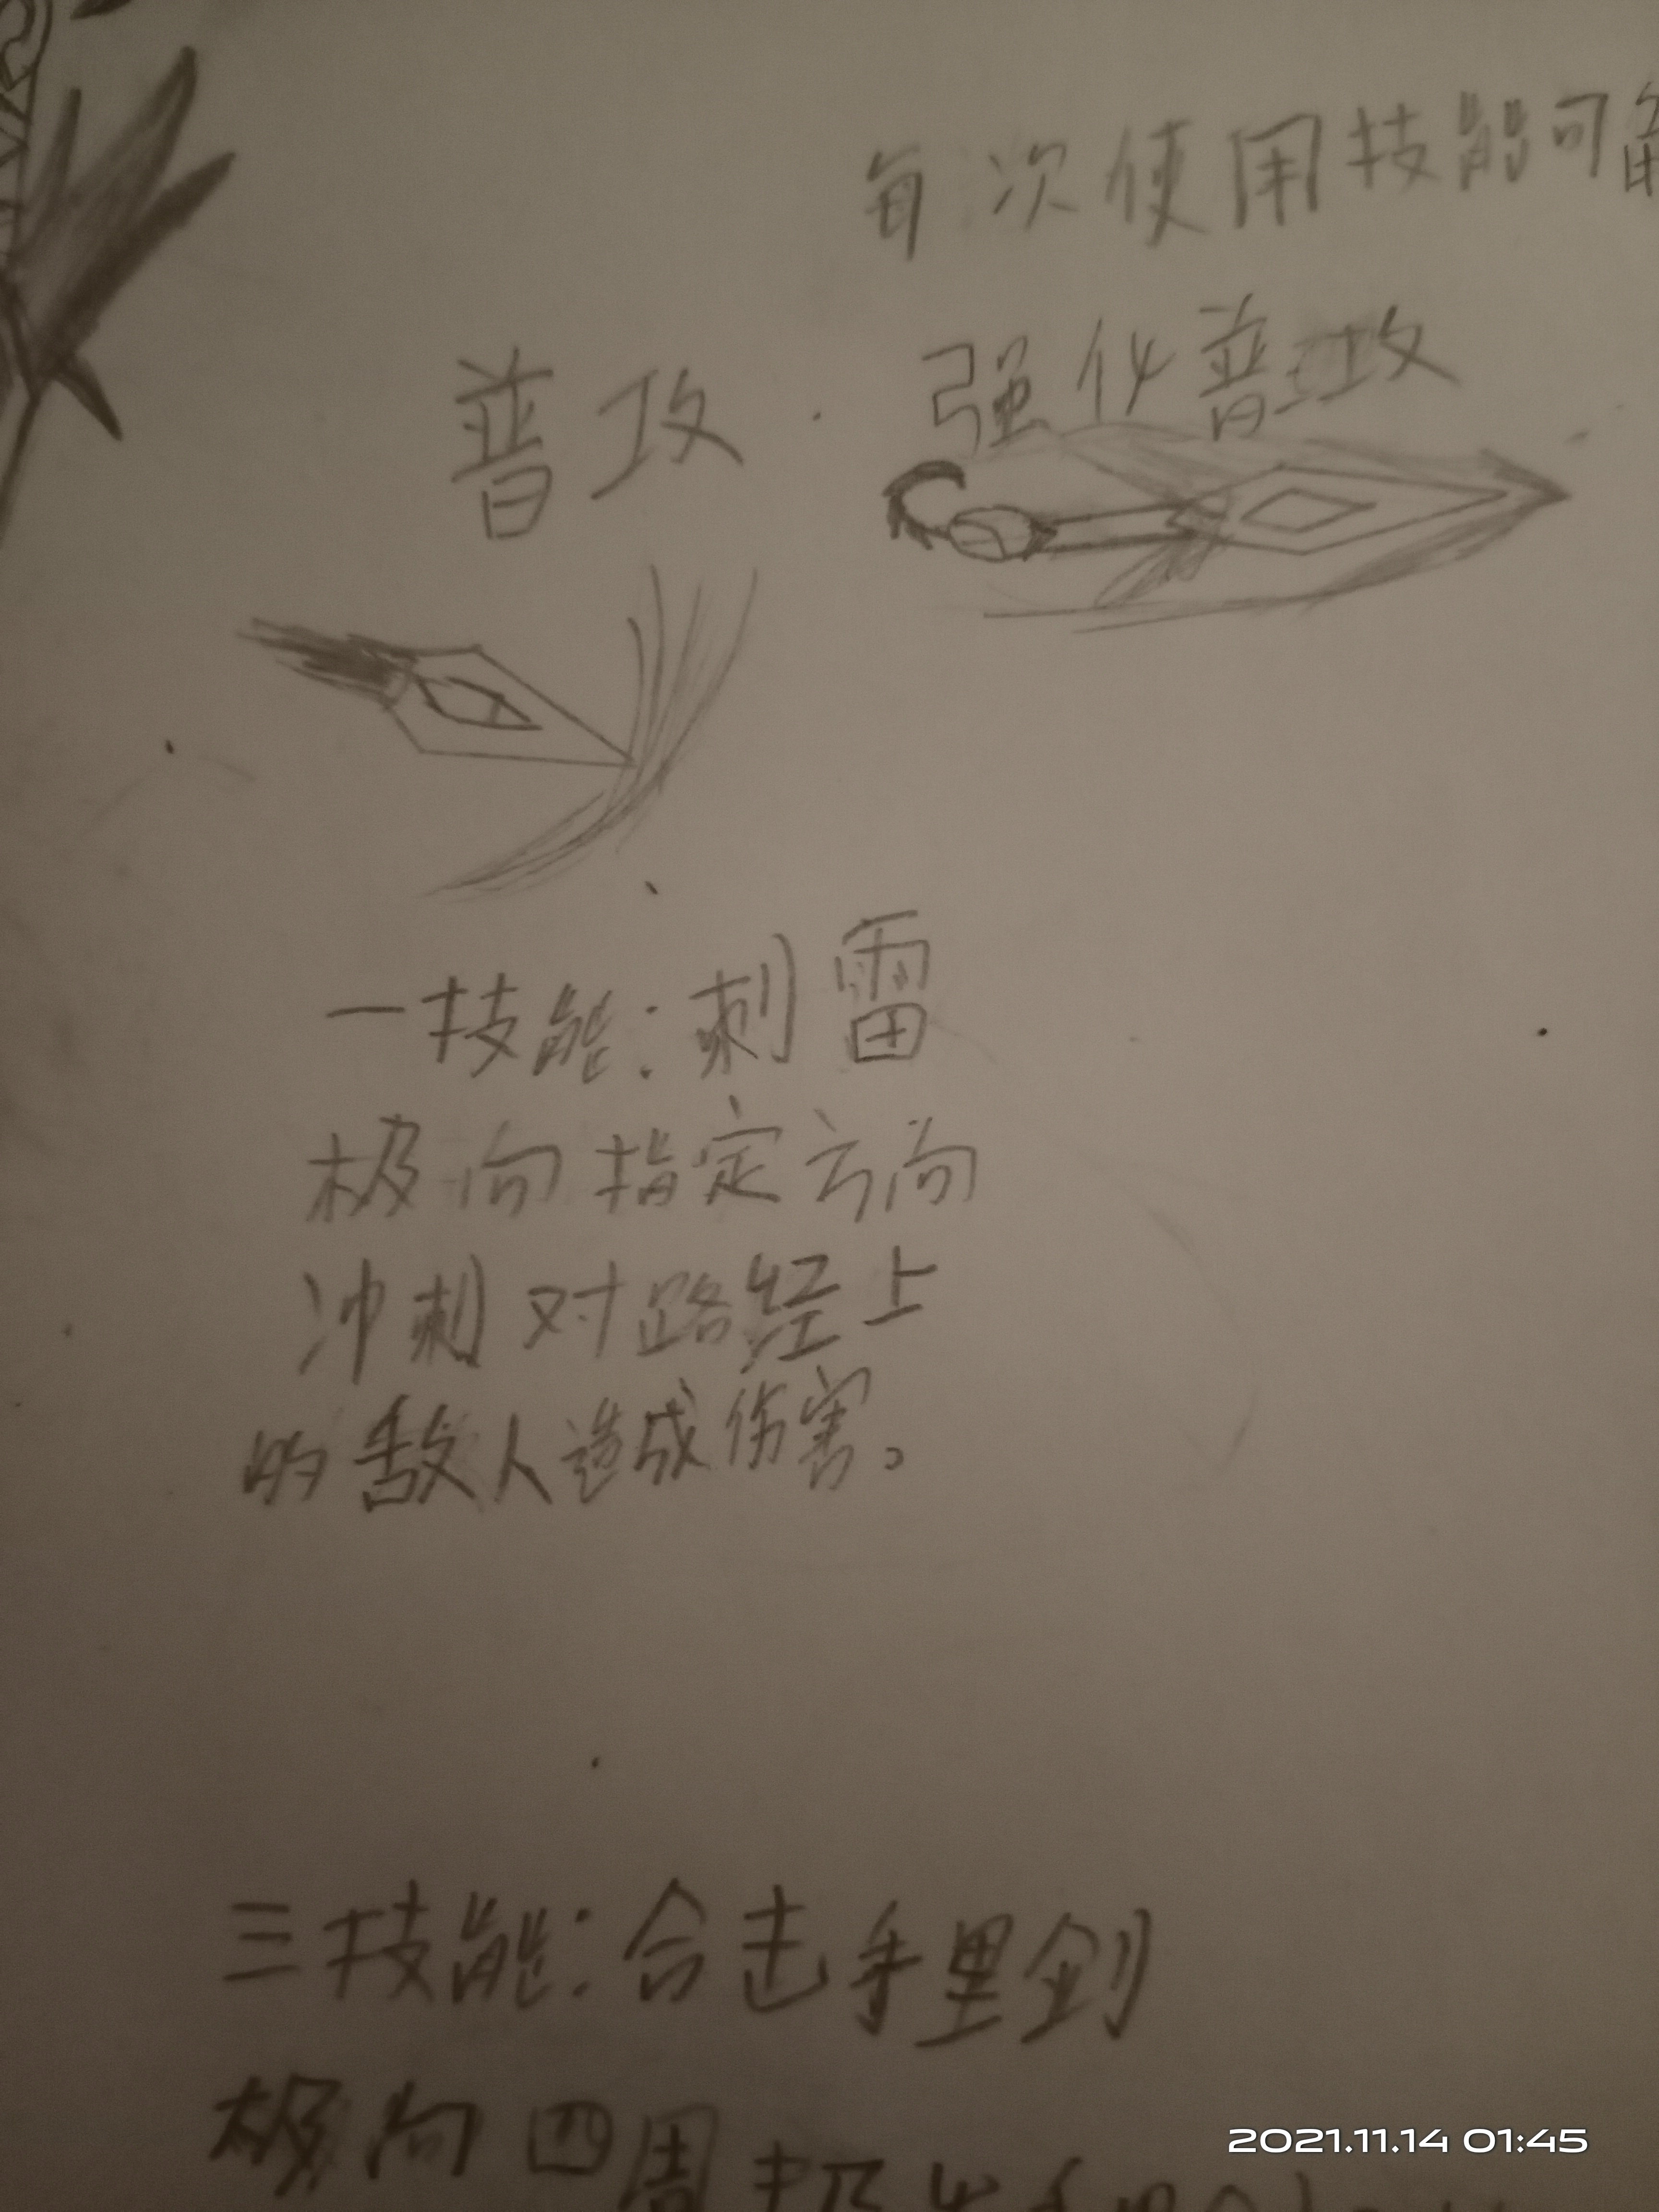 每次使用技能可
普攻
强化普攻
一技能：刺雷
极向指定方向
冲刺对路经上
的敌人造成伤害。
三技能：合击手里剑
极向四周
2021.11.14 01:45